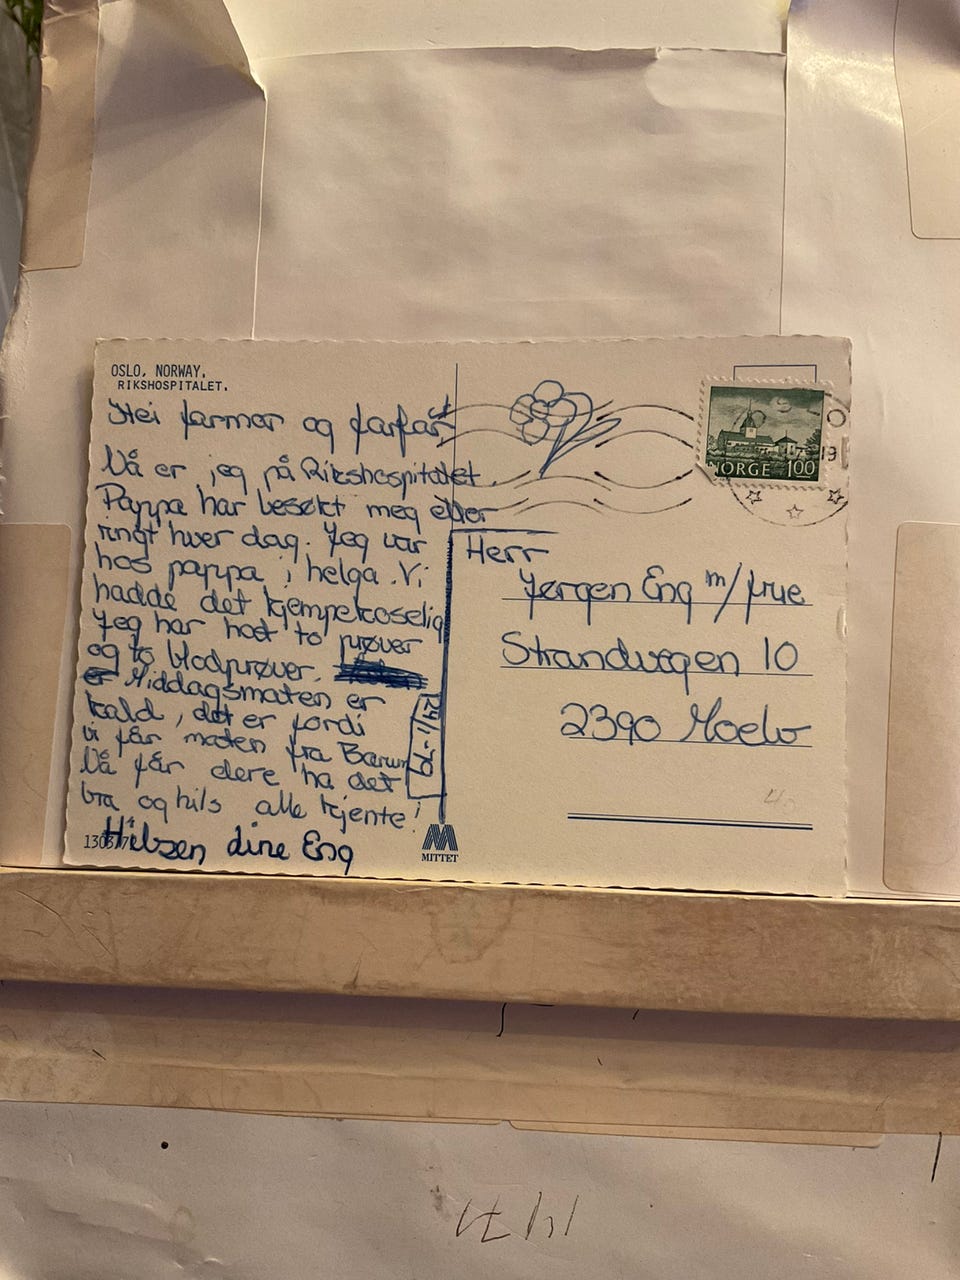 OSLO, NORWAY.
RIKSHOSPITALET.
Hei farmor og farfar
Nå er jeg på Rikshospitalet.
Pappa har besøkt meg eller
ringt hver dag. Jeg var
hos pappa i helga. Vi
hadde det kjempekoselig
Jeg har hatt to prøver
og to blodprøver.
Middagsmaten er
kald, det er fordi
vi får maten fra Bærum
Nå får dere ha det
bra og hils alle kjente!
Hilsen dine Eng
24/1-79
MITTET
NORGE 100
Herr
Jørgen Eng m/frue
Strandvegen 10
2390 Moelv